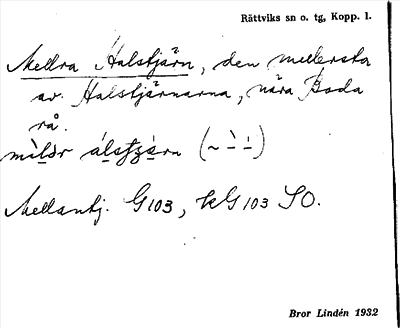 Rättviks sn o. tg, Kopp. l.
Mellra Halstjärn, den mellersta
av Halstjärnarna, nära Boda
rå.
Mellantj. G103, kG103 SO.
Bror Lindén 1932